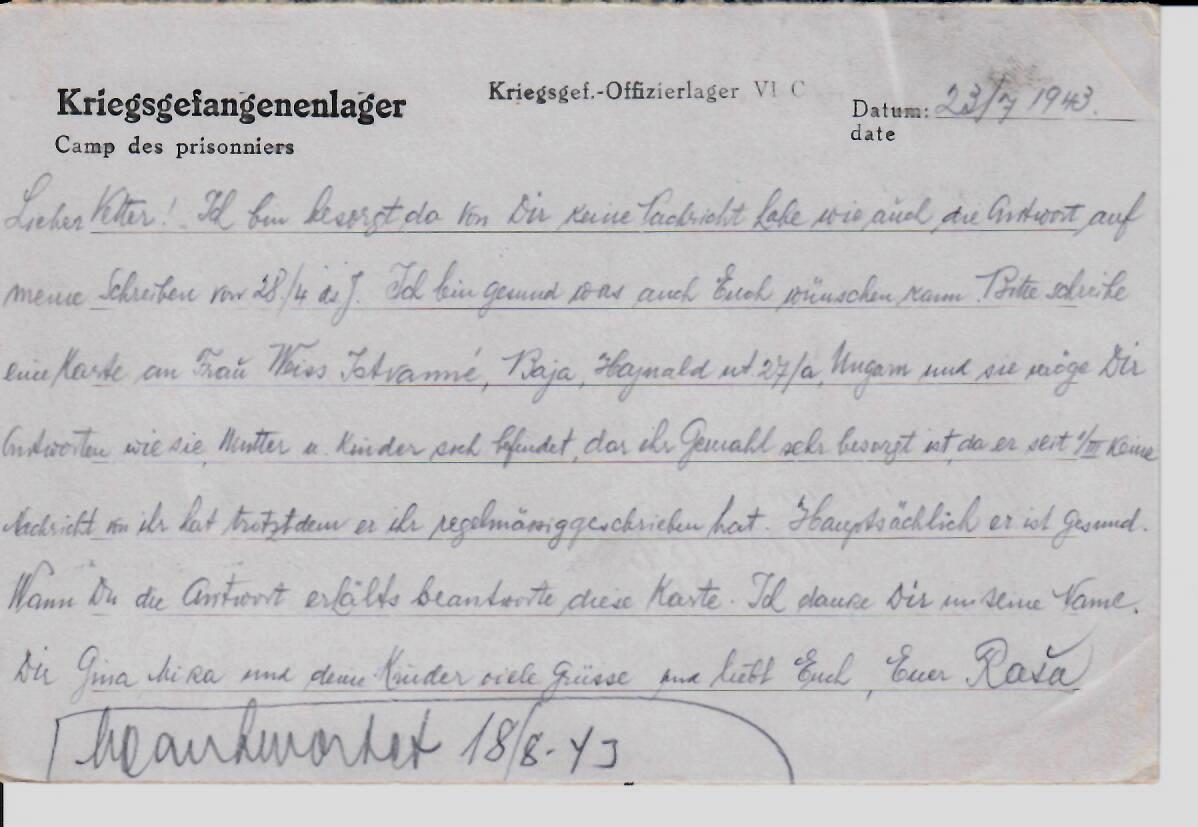 Kriegsgefangenenlager
Camp des prisonniers
Kriegsgef.-Offizierlager VI C
Datum: 23/7 1943.
date
Lieber Vetter! Ich bin besorgt da von Dir keine Nachricht habe wie auch die Antwort auf
meine Schreiben von 28/4 ds J. Ich bin gesund was auch Euch wünschen kann. Bitte schreibe
eine Karte an Frau Weiss Istvanné, Baja, Hajnald ut. 27/a, Ungarn und sie möge Dir
Antworten wie sie, Mutter u. Kinder sich befindet, dar ihr Gemahl sehr besorgt ist, da er seit 1/III keine
Nachricht von ihr hat trotztdem er ihr regelmässig geschrieben hat. Hauptsächlich er ist gesund.
Wann Du die Antwort erhälts beantworte diese Karte. Ich danke Dir in seine Name.
Dir Gina Mira und deine Kinder viele Grüsse und liebt Euch, Euer Raša
beantwortet 18/8-43